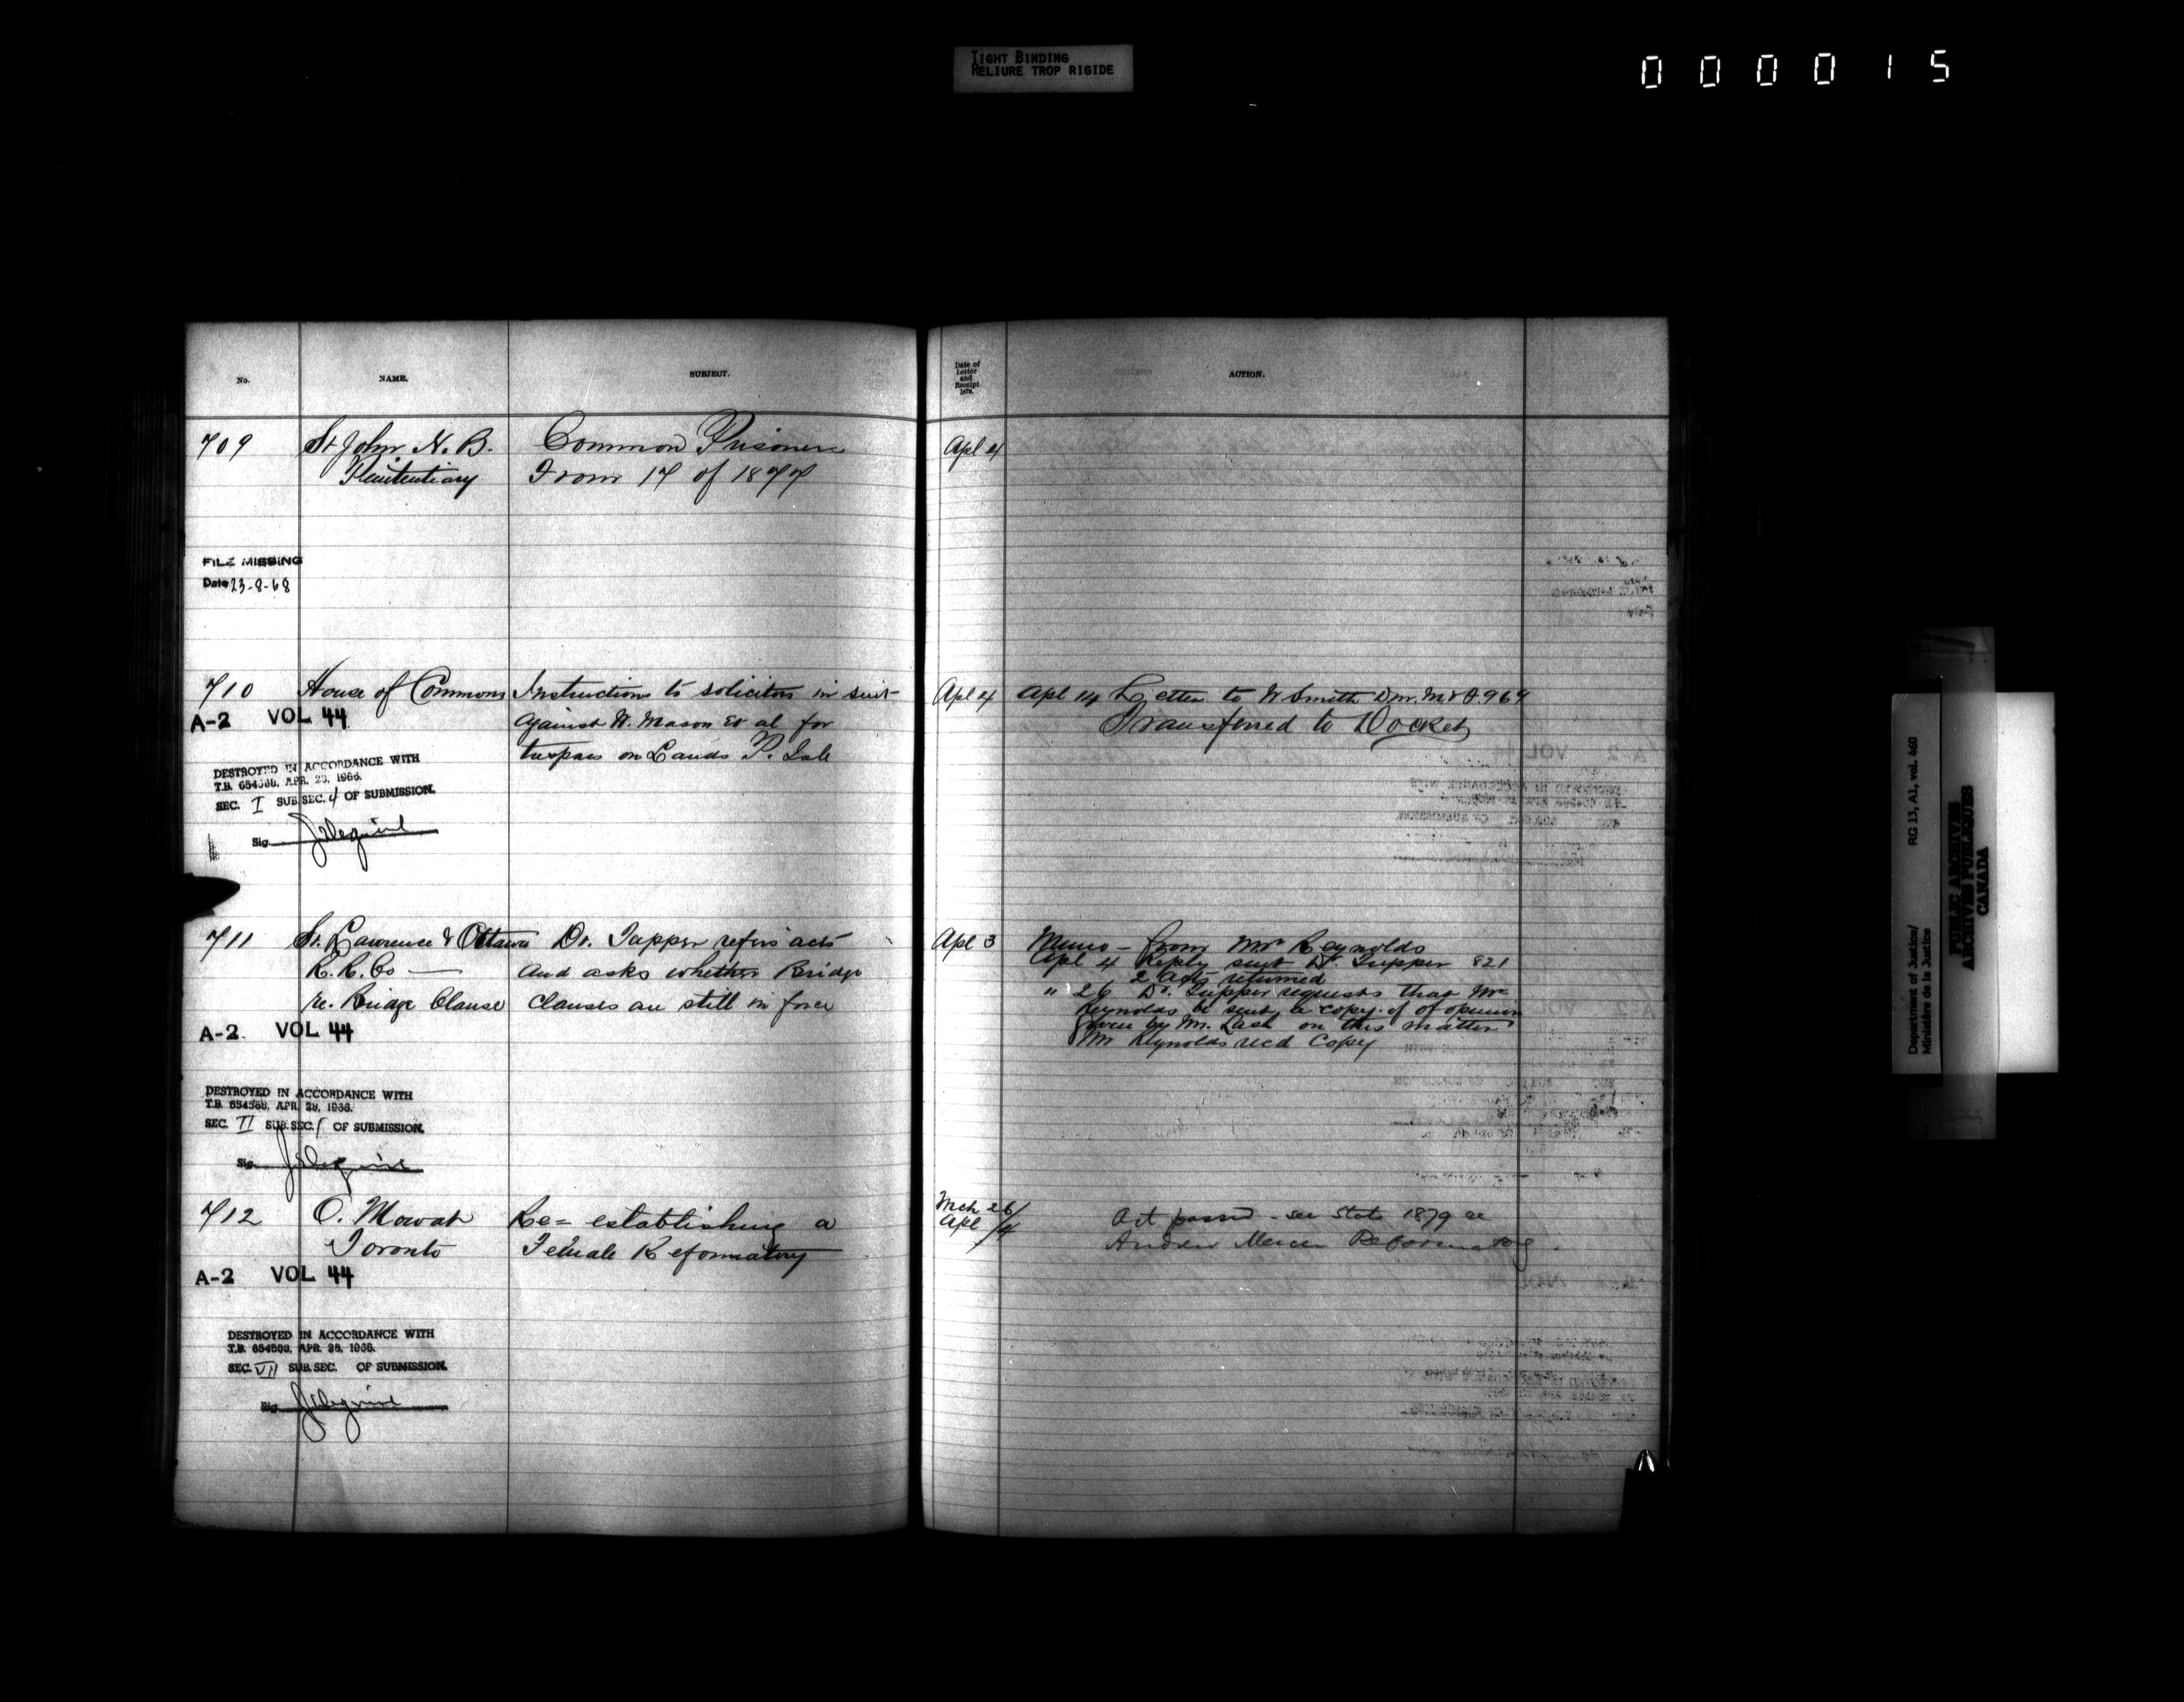 TIGHT BINDING
RELIURE TROP RIGIDE
000015
No. NAME. SUBJECT.
Date of
Letter
and
Receipt
1879.
ACTION.
709 St John N. B. Common Prisoners Apl 4
Penitentiary From 17 of 1877
FILE MISSING
Date 23-8-68
710 House of Commons Instructions to solicitors in suit Apl 4 Apl 14 Letter to W Smith D.m. M & F. 969
A-2 VOL 44 against W. Mason et al for Transferred to Docket
trespass on Lands P. Isle
DESTROYED IN ACCORDANCE WITH
T.B. 654568, APR. 28, 1966.
SEC. I SUB.SEC. 4 OF SUBMISSION.
Sig.
711 St. Lawrence & Ottawa Dr. Tupper refers acts Apl 3 Memo - from Mr Reynolds
R. R. Co — and asks whether Bridge Apl 4 Reply sent Dr. Tupper 821
2 Acts returned
re. Bridge Clause clauses are still in force " 26 Dr. Tupper requests that Mr
Reynolds be sent a copy of of opinion
given by Mr. Lash on this matter
Mr Reynolds recd Copy
A-2. VOL 44
DESTROYED IN ACCORDANCE WITH
T.B. 654568, APR. 28, 1966.
SEC. II SUB.SEC. 1 OF SUBMISSION.
Sig.
712 O. Mowat Re= establishing a Mch 26/ Act passed - see Stats 1879 re
Toronto Female Reformatory Apl /4 Andrew Mercer Reformatory.
A-2 VOL 44
DESTROYED IN ACCORDANCE WITH
T.B. 654568, APR. 28, 1966.
SEC. VII SUB.SEC. OF SUBMISSION.
Sig.
Department of Justice/ RG 13, A1, vol. 460
Ministère de la Justice
PUBLIC ARCHIVES
ARCHIVES PUBLIQUES
CANADA